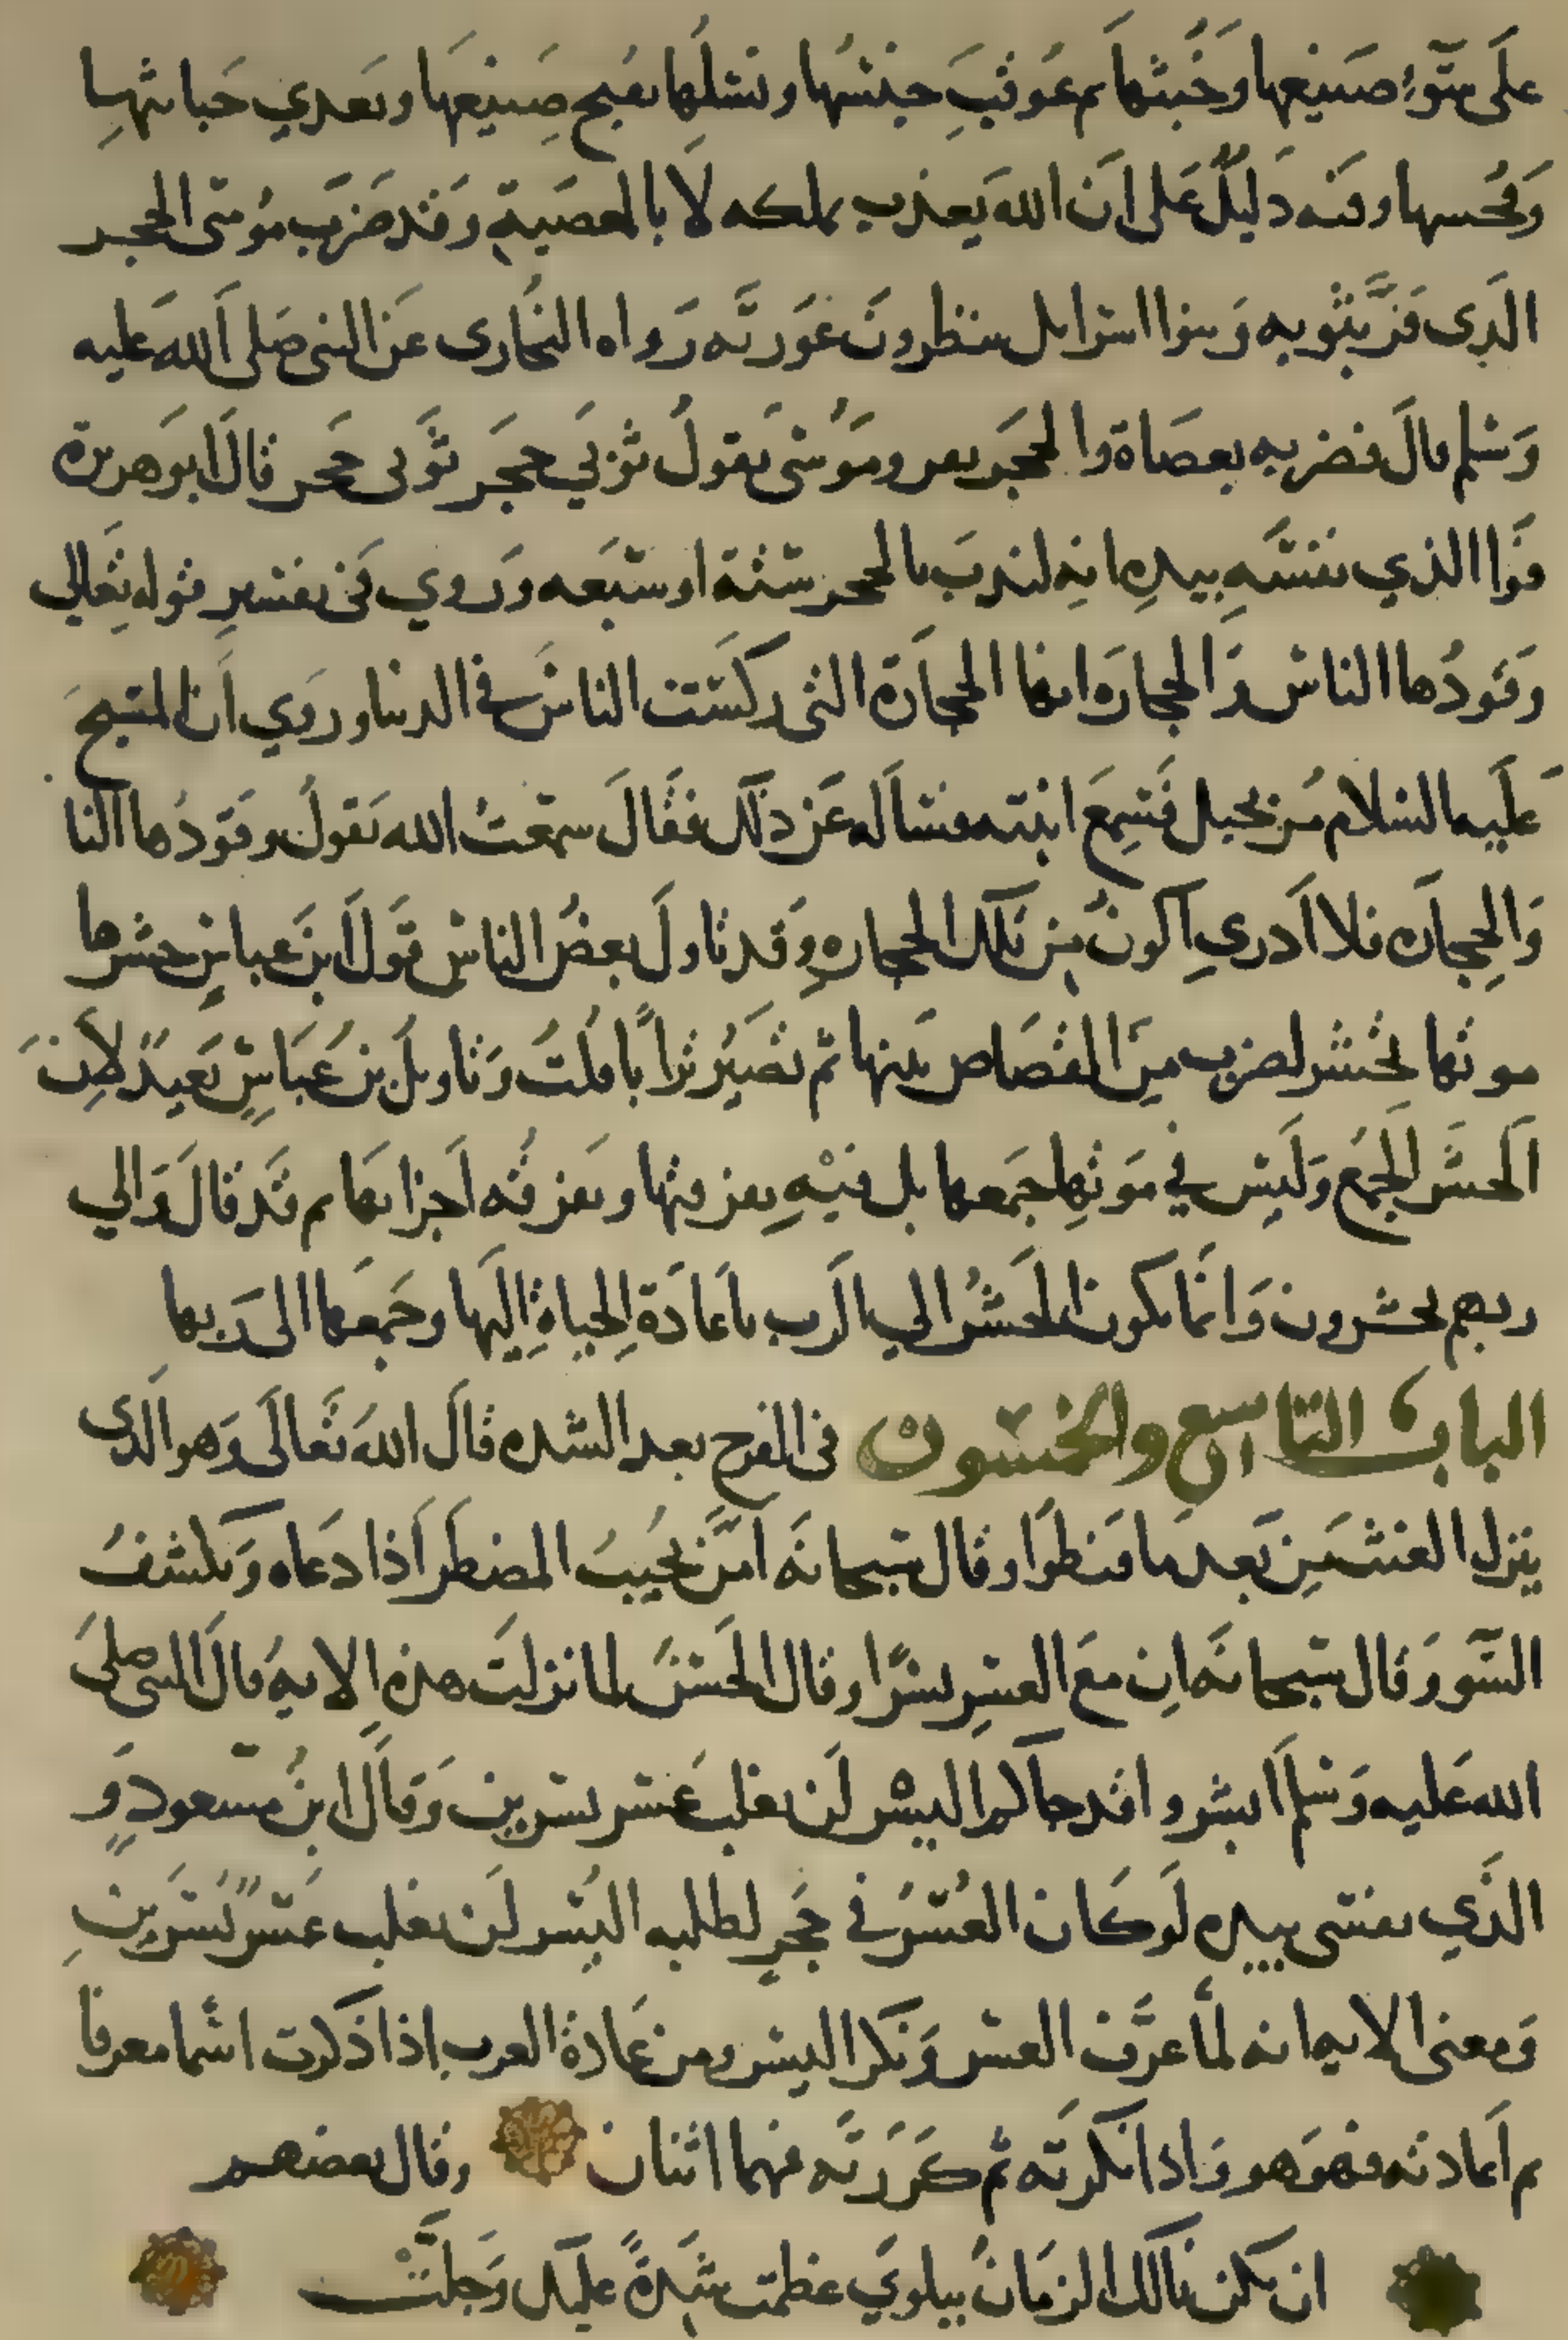 على سوء صنيعها وخبثها ثم عوقب جنسها ونسلها بقبح صنيعها وتعدي خباثتها
ونحسها وفيه دليل على ان الله يعذب بملكه لا بالمعصية وقد ضرب موسى الحجر
الذي فر بثوبه وبنوا اسرايل ينظرون عورته رواه البخارى عن النبى صلى الله عليه
وسلم قال فضربه بعصاة والحجر يفر وموسى يقول ثوبي حجر ثوبى حجر قال ابو هريرة
فوا الذي نفسه بيده انه لندب بالحجر ستة او سبعه وروي فى تفسير قوله تعالي
وقودها الناس والحجاره انها الحجارة التى كسرت الناس في الدنيا وروي ان المسيح
عليه السلام مر بجبل فسمع انينه فسأله عن ذلك فقال سمعت الله يقول وقودها النا
والحجاره فلا ادري اكون من تلك الحجاره وقد تاول بعض الناس قول ابن عباس حشرها
موتها تحشر لضرب من القصاص بينها ثم تصير ترابا قلت وتاويل بن عباس بعيد لان
الحشر الجمع وليس في موتها جمعها بل فيه تفرقتها وتفرقه اجزايها ثم قد قال والي
ربهم يحشرون وانما يكون الحشر الي الرب باعادة الحياة اليها وجمعها الى ربها
الباب التاسع والخمسون فى الفرج بعد الشده قال الله تعالى وهو الذى
ينزل الغيث من بعد ما قنطوا وقال سبحانه امن يجيب المضطر اذا دعاه ويكشف
السوء وقال سبحانه ان مع العسر يسرا وقال الحسن لما نزلت هذه الايه قال النبى صلى
الله عليه وسلم ابشروا قد جاكم اليسر لن يغلب عسر يسرين وقال ابن مسعود و
الذي نفسى بيده لو كان العسر في حجر لطلبه اليسر لن يغلب عسر يسرين
ومعنى الايه انه لما عرف العسر ونكر اليسر ومن عادة العرب اذا ذكرت اسما معرفا
ثم اعادته فهو هو واذا نكرته ثم كررته فهما اثنان وقال بعضهم
ان يكن نالك الزمان ببلوي عظمت شدة عليك وجلت